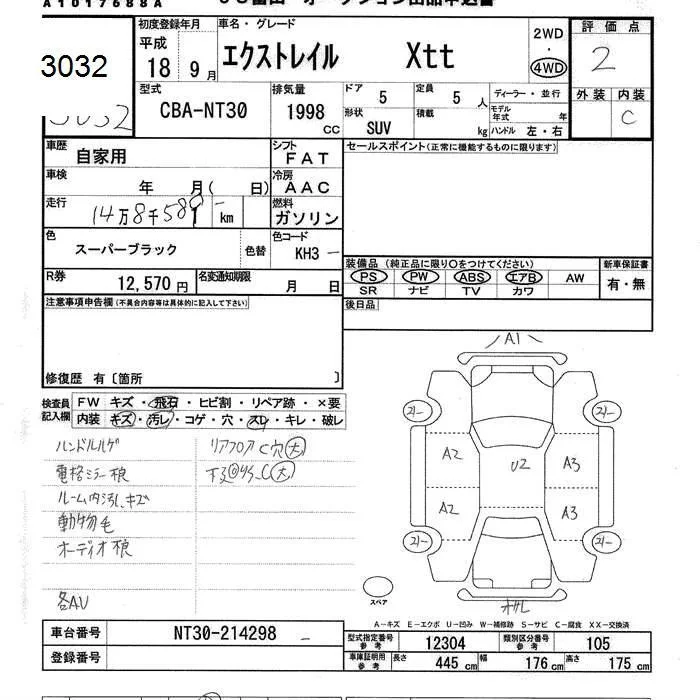 A1017688A
オークション出品申込書
3032
初度登録年月
平成
18 9 月
車名・グレード
エクストレイル Xtt
2WD
・
4WD
評価点
2
型式
CBA-NT30
排気量
1998
CC
ドア 5
定員 5 人
形状
SUV
積載
kg
ディーラー・並行
モデル
年式 年
ハンドル 左・右
外装 内装
C
3032
車歴
自家用
シフト
FAT
セールスポイント(正常に機能するものに限ります)
車検
年 月( 日)
冷房
AAC
走行
14万8千589 km
燃料
ガソリン
色
スーパーブラック
色替
色コード
KH3
R券
12,570円
名変通知期限
月 日
装備品(純正品に限り〇をつけてください)
PS PW ABS エアB AW
SR ナビ TV カワ
新車保証書
有・無
後日品
注意事項申告欄(不具合内容等は具体的に記入して下さい)
修復歴 有〔箇所 〕
検査員
記入欄
FW キズ・飛石・ヒビ割・リペア跡・×要
内装 キズ・汚レ・コゲ・穴・スレ・キレ・破レ
ハンドルハゲ
リアフロアC穴大
電格ミラー損
ルーム内汚し、キズ
動物毛
オーディオ損
各AU
A1
A2 U2 A3
A2 A3
スペア
A-キズ E-エクボ U-凹み W-補修跡 S-サビ C-腐食 XX-交換済
車台番号 NT30-214298
登録番号
型式指定番号
参考
12304
類別区分番号
参考
105
車庫証明用
参考
長さ 445 cm 幅 176 cm 高さ 175 cm